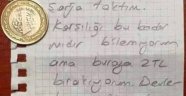 Şarja taktım.
Karşılığı bu kadar
mıdır bilemiyorum
ama buraya 2TL
bırakıyorum.